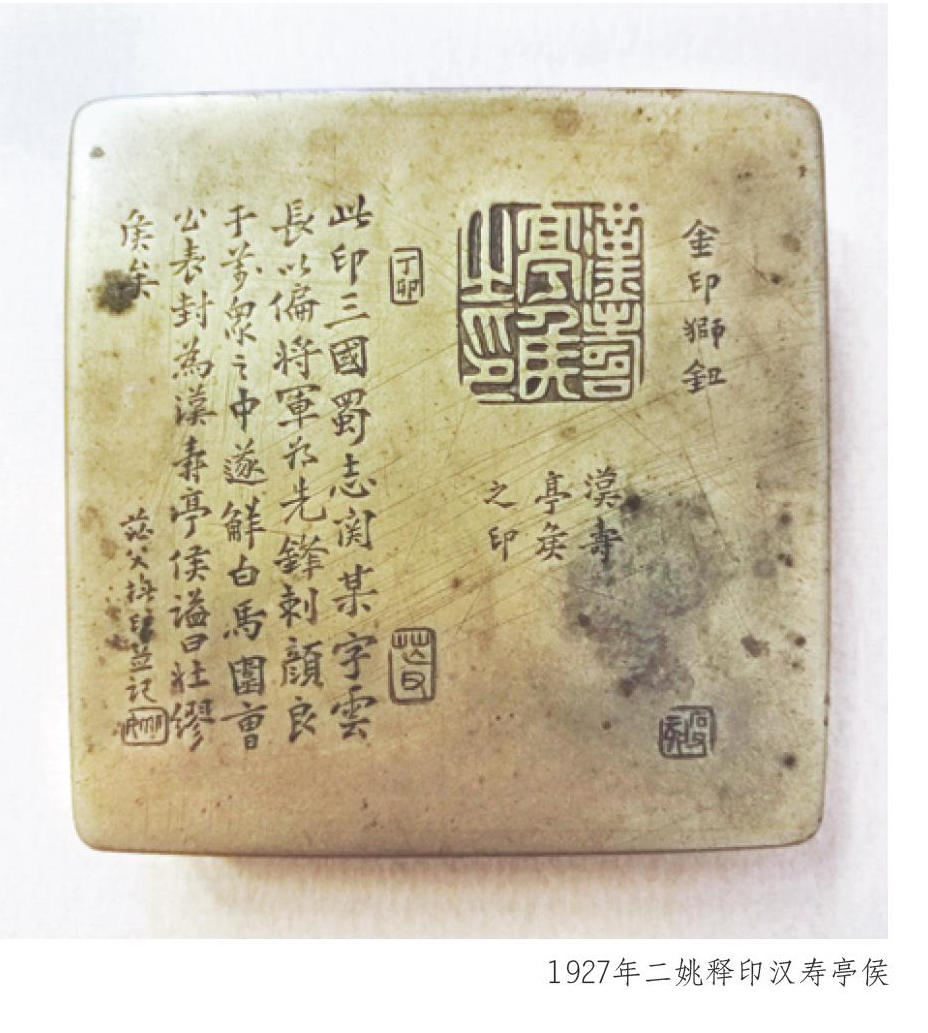 金印獅鈕
漢壽
亭侯
之印
漢壽
亭侯
之印
丁卯
茫父
此印三國蜀志関某字雲
長以偏將軍為先鋒刺顏良
于萬眾之中遂解白馬圍曹
公表封為漢壽亭侯謚曰壯繆
侯矣
茫父撫印並記
1927年二姚释印汉寿亭侯